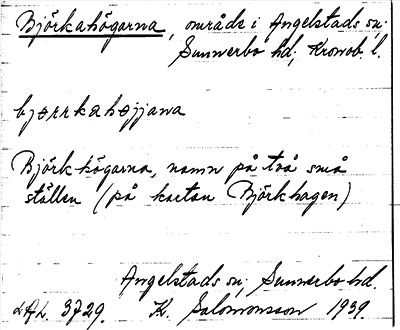 Björkahögarna, område i Angelstads sn;
Sunnerbo hd; Kronob. l.
bjørrkahøjjana
Björkhögarna, namn på två små
ställen (på kartan Björkhagen)
Angelstads sn; Sunnerbo hd.
3729. K. Salomonsson 1939